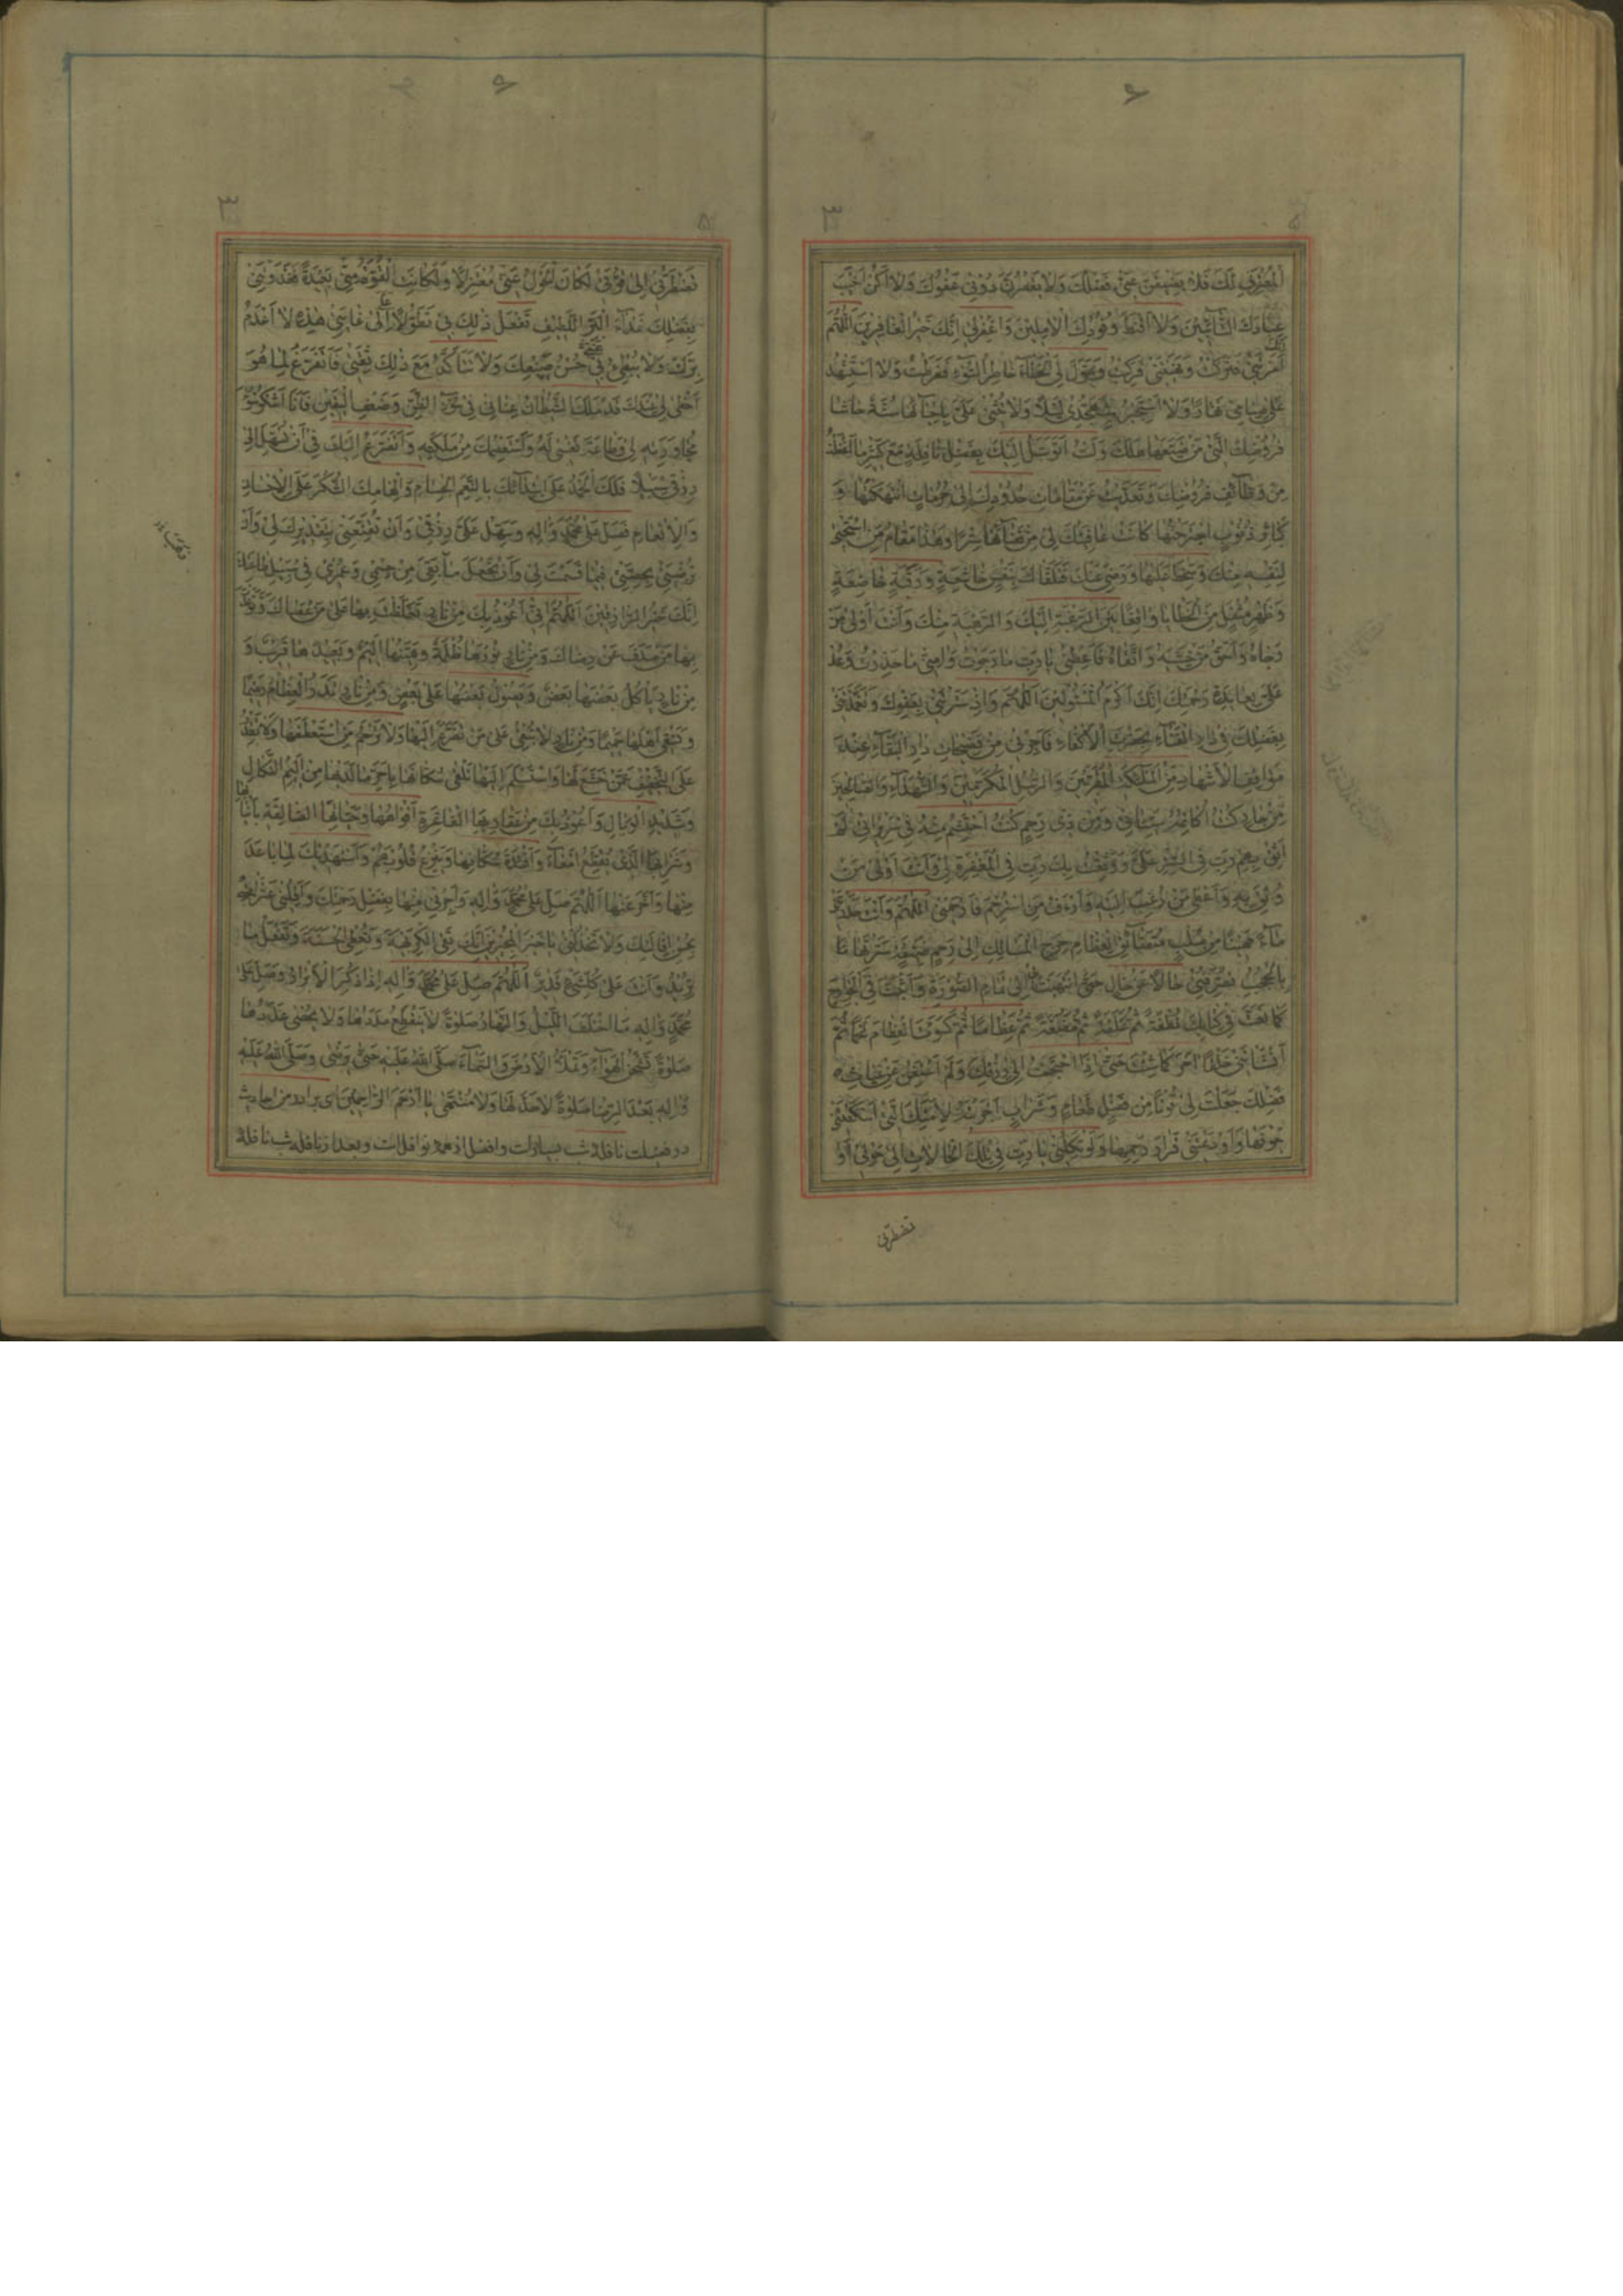 الْمُقِرِّ لَكَ فَلَا يَضِيقَنَّ عَنِّي فَضْلُكَ وَلَا يَقْصُرَنَّ دُونِي عَفْوُكَ وَلَا أَكُنْ أَخْيَبَ
عِبَادِكَ التَّائِبِينَ وَلَا أَقْنَطَ وُفُودِكَ الْآمِلِينَ وَاغْفِرْ لِي إِنَّكَ خَيْرُ الْغَافِرِينَ اَللّٰهُمَّ إِنَّكَ
أَمَرْتَنِي فَتَرَكْتُ وَنَهَيْتَنِي فَرَكِبْتُ وَسَوَّلَ لِيَ الْخَطَاءَ خَاطِرُ السُّوءِ فَفَرَّطْتُ وَلَا أَسْتَشْهِدُ
عَلَى صِيَامِي نَهَارًا وَلَا أَسْتَجِيرُ بِتَهَجُّدِي لَيْلًا وَلَا تُثْنِي عَلَيَّ بِإِحْيَائِهَا سُنَّةٌ حَاشَا
فُرُوضِكَ الَّتِي مَنْ ضَيَّعَهَا هَلَكَ وَلَسْتُ أَتَوَسَّلُ إِلَيْكَ بِفَضْلِ نَافِلَةٍ مَعَ كَثِيرِ مَا أَغْفَلْتُ
مِنْ وَظَائِفِ فُرُوضِكَ وَتَعَدَّيْتُ عَنْ مَقَامَاتِ حُدُودِكَ إِلَى حُرُمَاتٍ انْتَهَكْتُهَا وَ
كَبَائِرِ ذُنُوبٍ اجْتَرَحْتُهَا كَانَتْ عَافِيَتُكَ لِي مِنْ فَضَائِحِهَا سِتْرًا وَهَذَا مَقَامُ مَنِ اسْتَحْيَى
لِنَفْسِهِ مِنْكَ وَسَخِطَ عَلَيْهَا وَرَضِيَ عَنْكَ فَتَلَقَّاكَ بِنَفْسٍ خَاشِعَةٍ وَرَقَبَةٍ خَاضِعَةٍ
وَظَهْرٍ مُثْقَلٍ مِنَ الْخَطَايَا وَاقِفًا بَيْنَ الرَّغْبَةِ إِلَيْكَ وَالرَّهْبَةِ مِنْكَ وَأَنْتَ أَوْلَى مَنْ
رَجَاهُ وَأَحَقُّ مَنْ خَشِيَهُ وَاتَّقَاهُ فَأَعْطِنِي يَا رَبِّ مَا رَجَوْتُ وَآمِنِّي مَا حَذِرْتُ وَعُدْ
عَلَيَّ بِعَائِدَةِ رَحْمَتِكَ إِنَّكَ أَكْرَمُ الْمَسْئُولِينَ اَللّٰهُمَّ وَإِذْ سَتَرْتَنِي بِعَفْوِكَ وَتَغَمَّدْتَنِي
بِفَضْلِكَ فِي دَارِ الْفَنَاءِ بِحَضْرَةِ الْأَكْفَاءِ فَأَجِرْنِي مِنْ فَضِيحَاتِ دَارِ الْبَقَاءِ عِنْدَ
مَوَاقِفِ الْأَشْهَادِ مِنَ الْمَلَائِكَةِ الْمُقَرَّبِينَ وَالرُّسُلِ الْمُكَرَّمِينَ وَالشُّهَدَاءِ وَالصَّالِحِينَ
مِنْ جَارٍ كُنْتُ أُكَاتِمُهُ سَيِّئَاتِي وَمِنْ ذِي رَحِمٍ كُنْتُ أَحْتَشِمُ مِنْهُ فِي سَرِيرَاتِي لَمْ
أَثِقْ بِهِمْ رَبِّ فِي السِّتْرِ عَلَيَّ وَوَثِقْتُ بِكَ رَبِّ فِي الْمَغْفِرَةِ لِي وَأَنْتَ أَوْلَى مَنْ
وُثِقَ بِهِ وَأَعْطَى مَنْ رُغِبَ إِلَيْهِ وَأَرْأَفُ مَنِ اسْتُرْحِمَ فَارْحَمْنِي اَللّٰهُمَّ وَأَنْتَ حَدَرْتَنِي
مَاءً مَهِينًا مِنْ صُلْبٍ مُتَضَائِقِ الْعِظَامِ حَرِجِ الْمَسَالِكِ إِلَى رَحِمٍ ضَيِّقَةٍ سَتَرْتَهَا
بِالْحُجُبِ تُصَرِّفُنِي حَالًا عَنْ حَالٍ حَتَّى انْتَهَيْتَ بِي إِلَى تَمَامِ الصُّورَةِ وَأَثْبَتَّ فِيَّ الْجَوَارِحَ
كَمَا نَعَتَّ فِي كِتَابِكَ نُطْفَةً ثُمَّ عَلَقَةً ثُمَّ مُضْغَةً ثُمَّ عِظَامًا ثُمَّ كَسَوْتَ الْعِظَامَ لَحْمًا ثُمَّ
أَنْشَأْتَنِي خَلْقًا آخَرَ كَمَا شِئْتَ حَتَّى إِذَا احْتَجْتُ إِلَى رِزْقِكَ وَلَمْ أَسْتَغْنِ عَنْ غِيَاثِ
فَضْلِكَ جَعَلْتَ لِي قُوتًا مِنْ فَضْلِ طَعَامٍ وَشَرَابٍ أَجْرَيْتَهُ لِأَمَتِكَ الَّتِي أَسْكَنْتَنِي
جَوْفَهَا وَأَوْدَعْتَنِي قَرَارَ رَحِمِهَا وَلَوْ تَكِلُنِي يَا رَبِّ فِي تِلْكَ الْحَالَاتِ إِلَى حَوْلِي أَوْ
تضطرنی
تَضْطَرُّنِي إِلَى قُوَّتِي لَكَانَ الْحَوْلُ عَنِّي مُعْتَزِلًا وَلَكَانَتِ الْقُوَّةُ مِنِّي بَعِيدَةً فَغَذَوْتَنِي
بِفَضْلِكَ غِذَاءَ الْبَرِّ اللَّطِيفِ تَفْعَلُ ذَلِكَ بِي تَطَوُّلًا عَلَيَّ إِلَى غَايَتِي هَذِهِ لَا أَعْدَمُ
بِرَّكَ وَلَا يُبْطِئُ بِي حُسْنُ صَنِيعِكَ وَلَا تَتَأَكَّدُ مَعَ ذَلِكَ ثِقَتِي فَأَتَفَرَّغَ لِمَا هُوَ
أَحْظَى لِي عِنْدَكَ قَدْ مَلَكَ الشَّيْطَانُ عِنَانِي فِي سُوءِ الظَّنِّ وَضَعْفِ الْيَقِينِ فَأَنَا أَشْكُو سُوءَ
مُجَاوَرَتِهِ لِي وَطَاعَةَ نَفْسِي لَهُ وَأَسْتَعْصِمُكَ مِنْ مَلَكَتِهِ وَأَتَضَرَّعُ إِلَيْكَ فِي أَنْ تُسَهِّلَ إِلَى
رِزْقِي سَبِيلًا فَلَكَ الْحَمْدُ عَلَى ابْتِدَائِكَ بِالنِّعَمِ الْجِسَامِ وَإِلْهَامِكَ الشُّكْرَ عَلَى الْإِحْسَانِ
وَالْإِنْعَامِ فَصَلِّ عَلَى مُحَمَّدٍ وَآلِهِ وَسَهِّلْ عَلَيَّ رِزْقِي وَأَنْ تُقَنِّعَنِي بِتَقْدِيرِكَ لِي وَأَنْ
تُرْضِيَنِي بِحِصَّتِي فِيمَا قَسَمْتَ لِي وَأَنْ تَجْعَلَ مَا بَقِيَ مِنْ جِسْمِي وَعُمْرِي فِي سَبِيلِ طَاعَتِكَ
إِنَّكَ خَيْرُ الرَّازِقِينَ اَللّٰهُمَّ إِنِّي أَعُوذُ بِكَ مِنْ نَارٍ تَغَلَّظْتَ بِهَا عَلَى مَنْ عَصَاكَ وَتَوَعَّدْتَ
بِهَا مَنْ صَدَفَ عَنْ رِضَاكَ وَمِنْ نَارٍ نُورُهَا ظُلْمَةٌ وَهَيِّنُهَا أَلِيمٌ وَبَعِيدُهَا قَرِيبٌ وَ
مِنْ نَارٍ يَأْكُلُ بَعْضَهَا بَعْضٌ وَيَصُولُ بَعْضُهَا عَلَى بَعْضٍ وَمِنْ نَارٍ تَذَرُ الْعِظَامَ رَمِيمًا
وَتَسْقِي أَهْلَهَا حَمِيمًا وَمِنْ نَارٍ لَا تُبْقِي عَلَى مَنْ تَضَرَّعَ إِلَيْهَا وَلَا تَرْحَمُ مَنِ اسْتَعْطَفَهَا وَلَا تَقْدِرُ
عَلَى التَّخْفِيفِ عَمَّنْ خَشَعَ لَهَا وَاسْتَسْلَمَ إِلَيْهَا تَلْقَى سُكَّانَهَا بِأَحَرِّ مَا لَدَيْهَا مِنْ أَلِيمِ النَّكَالِ
وَشَدِيدِ الْوَبَالِ وَأَعُوذُ بِكَ مِنْ عَقَارِبِهَا الْفَاغِرَةِ أَفْوَاهُهَا وَحَيَّاتِهَا الصَّالِقَةِ بِأَنْيَابِهَا
وَشَرَابِهَا الَّذِي يُقَطِّعُ أَمْعَاءَ وَأَفْئِدَةَ سُكَّانِهَا وَيَنْزِعُ قُلُوبَهُمْ وَأَسْتَهْدِيكَ لِمَا بَاعَدَ
مِنْهَا وَأَخَّرَ عَنْهَا اَللّٰهُمَّ صَلِّ عَلَى مُحَمَّدٍ وَآلِهِ وَأَجِرْنِي مِنْهَا بِفَضْلِ رَحْمَتِكَ وَأَقِلْنِي عَثَرَاتِي
بِحُسْنِ إِقَالَتِكَ وَلَا تَخْذُلْنِي يَا خَيْرَ الْمُجِيرِينَ إِنَّكَ تَقِي الْكَرِيهَةَ وَتُعْطِي الْحَسَنَةَ وَتَفْعَلُ مَا
تُرِيدُ وَأَنْتَ عَلَى كُلِّ شَيْءٍ قَدِيرٌ اَللّٰهُمَّ صَلِّ عَلَى مُحَمَّدٍ وَآلِهِ إِذَا ذُكِرَ الْأَبْرَارُ وَصَلِّ عَلَى
مُحَمَّدٍ وَآلِهِ مَا اخْتَلَفَ اللَّيْلُ وَالنَّهَارُ صَلٰوةً لَا يَنْقَطِعُ مَدَدُهَا وَلَا يُحْصَى عَدَدُهَا
صَلٰوةً تَشْحَنُ الْهَوَاءَ وَتَمْلَأُ الْأَرْضَ وَالسَّمَاءَ صَلَّى اللهُ عَلَيْهِ حَتَّى يَرْضَى وَصَلَّى اللهُ عَلَيْهِ
وَآلِهِ بَعْدَ الرِّضَا صَلٰوةً لَا حَدَّ لَهَا وَلَا مُنْتَهَى يَا أَرْحَمَ الرَّاحِمِينَ ای برادر من احادیث
در فضیلت نافلهٔ شب بسیارست وافضل از همه نوافل است وبعد از نافله شب نافلهٔ